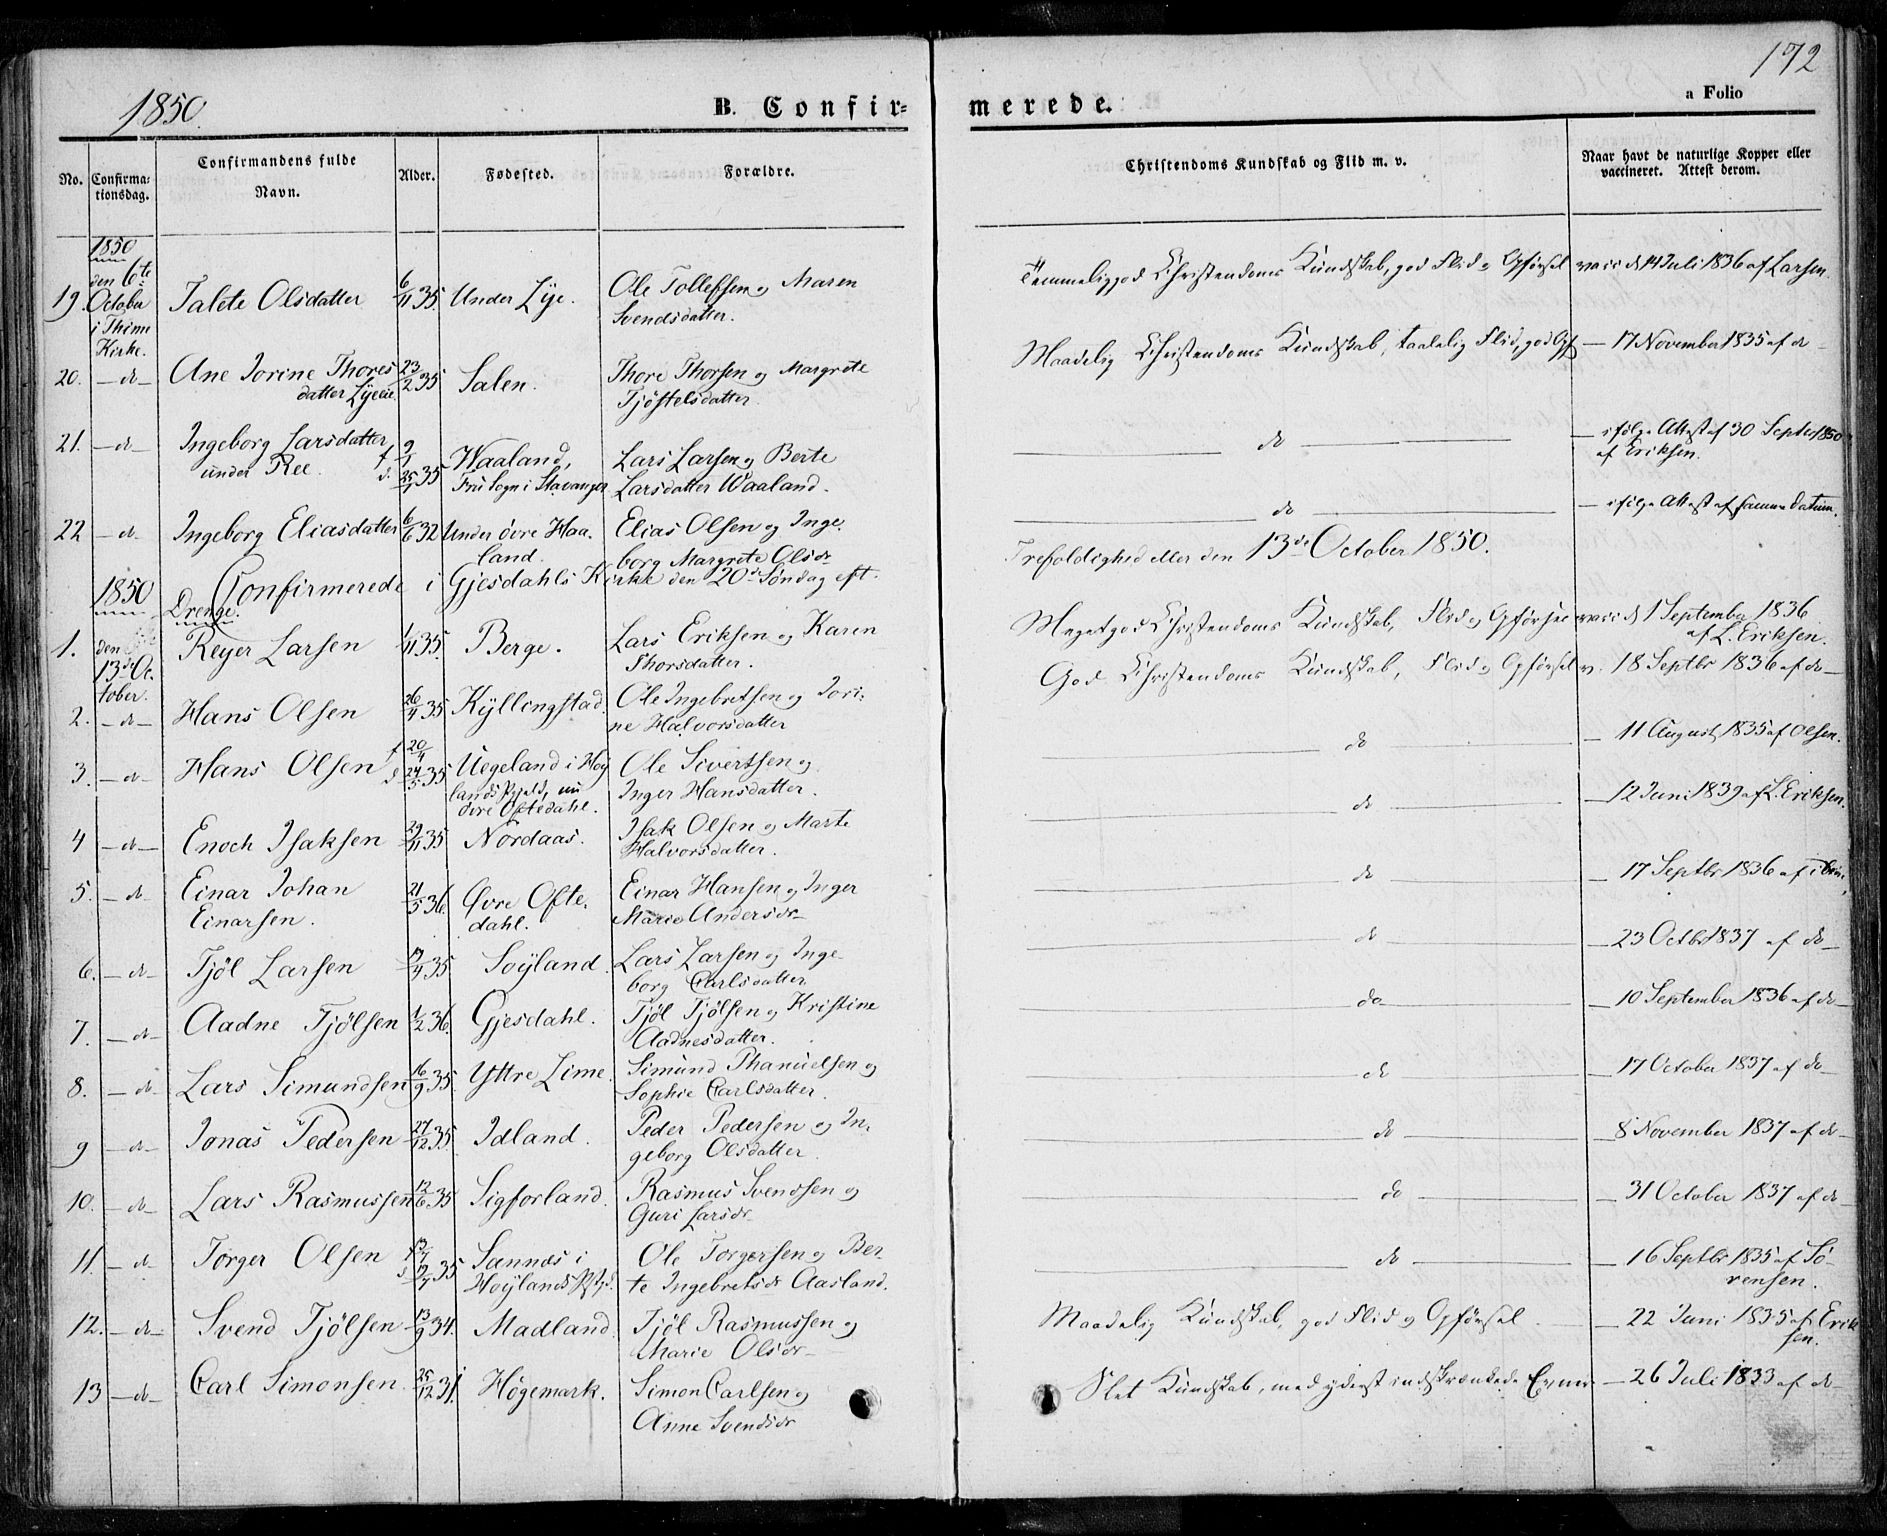 172
1850.
B. Confir-
merede.
a Folio
No.
Confirma-
tionsdag.
Confirmandens fulde
Navn.
Alder.
Fødested.
Forældre.
Christendoms Kundskab og Flid m. v.
Naar havt de naturlige Kopper eller
vaccineret. Attest derom.
1850
den 6te
October
i Thime
Kirke.
19. Talete Olsdatter 6/11 35. Under Lye. Ole Tollefsen og Maren
Svendsdatter.
Temmelig god Christendoms Kundskab, god Flid og Opførsel vacc. d. 14 Juli 1836 af Larsen.
20. – do – Ane Jorine Thores
datter Lyeeie. 23/2 35 Salen. Thore Thorsen og Margrete
Tjøstelsdatter.
Maadelig Christendoms Kundskab, taalelig Flid, god Opf – 17 November 1835 af do –
21. – do Ingeborg Larsdatter
under Ree. f. 9/1 d. 25/1 35 Waaland,
Fru Sogn i Stavanger Lars Larsen og Berte
Larsdatter Waaland.
do – ifølge Attest af 30 Septbr 1850
af Eriksen.
22 – do Ingeborg Eliasdatter 6/6 32 Under övre Haa-
land. Elias Olsen og Inge-
borg Margrete Olsdr
do – ifølge Attest af samme Datum.
1850 Confirmerede i Gjesdahls Kirke den 20de Søndag eft.
Trefoldighed eller den 13de October 1850.
Drenge.
1. den
13de Oc-
tober. Reyer Larsen 1/11 35. Berge. Lars Eriksen og Karen
Thorsdatter.
Meget god Christendoms Kundskab, Flid og Opførsel vacc. d. 1 September 1836
af L. Eriksen.
2. – do – Hans Olsen 26/4 35 Kyllingstad. Ole Ingebretsen og Jori-
ne Halvorsdatter
God Christendoms Kundskab, Flid og Opførsel v. 18 Septbr 1836 af do –
3. – do – Hans Olsen f 20/4 d 24/5 35 Uegeland i Høy
lands Pgjeld, nu
övre Oftedahl. Ole Sivertsen og
Inger Hansdatter.
do – 11 August 1835 af Olsen.
4 – do – Enoch Isaksen 29/11 35 Nordaas. Isak Olsen og Marte
Halvorsdatter.
do – 12 Juni 1839 af L. Eriksen.
5. – do Einar Johan
Einarsen. 21/5 36. Øvre Ofte-
dahl. Einar Hansen og Inger
Marie Andersdr –
do – 17 Septbr 1836 af
6. – do – Tjøl Larsen 17/4 35 Soyland. Lars Larsen og Inge-
borg Carlsdatter
do – 23 Octbr 1837 af do –
7. – do – Aadne Tjølsen 1/2 36. Gjesdahl. Tjøl Tjølsen og Kristine
Aadnesdatter.
do – 10 September 1836 af do –
8. – do Lars Simundsen 16/9 35. Yttre Lime. Simund Phanuelsen og
Sophie Carlsdatter.
do – 17 October 1837 af do –
9 – do – Jonas Pedersen 27/12 35. Idland. Peder Pedersen og In-
geborg Olsdatter.
do – 8 November 1837 af do –
10. – do – Lars Rasmussen 12/6 35 Sigforland. Rasmus Svendsen og
Guri Larsdr –
do – 31 October 1837 af do –
11. – do – Torger Olsen f 13/7 d 19/7 35 Sannæs i
Hoylands Ole Torgersen og Ber-
te Ingebretsdr Aasland.
do – 16 Septbr 1835 af Sö-
rensen.
12. – do – Svend Tjølsen 13/9 34. Madland. Tjøl Rasmussen og
Marie Olsdr –
Maadelig Kundskab, god Flid og Opførsel – 22 Juni 1835 af Erik
sen.
13 – do – Carl Simonsen 25/12 31. Högemark. Simon Carlsen og
Anne Svendsdr
Slet Kundskab, med yderst indskrænkede Evner – 26 Juli 1833 af do –